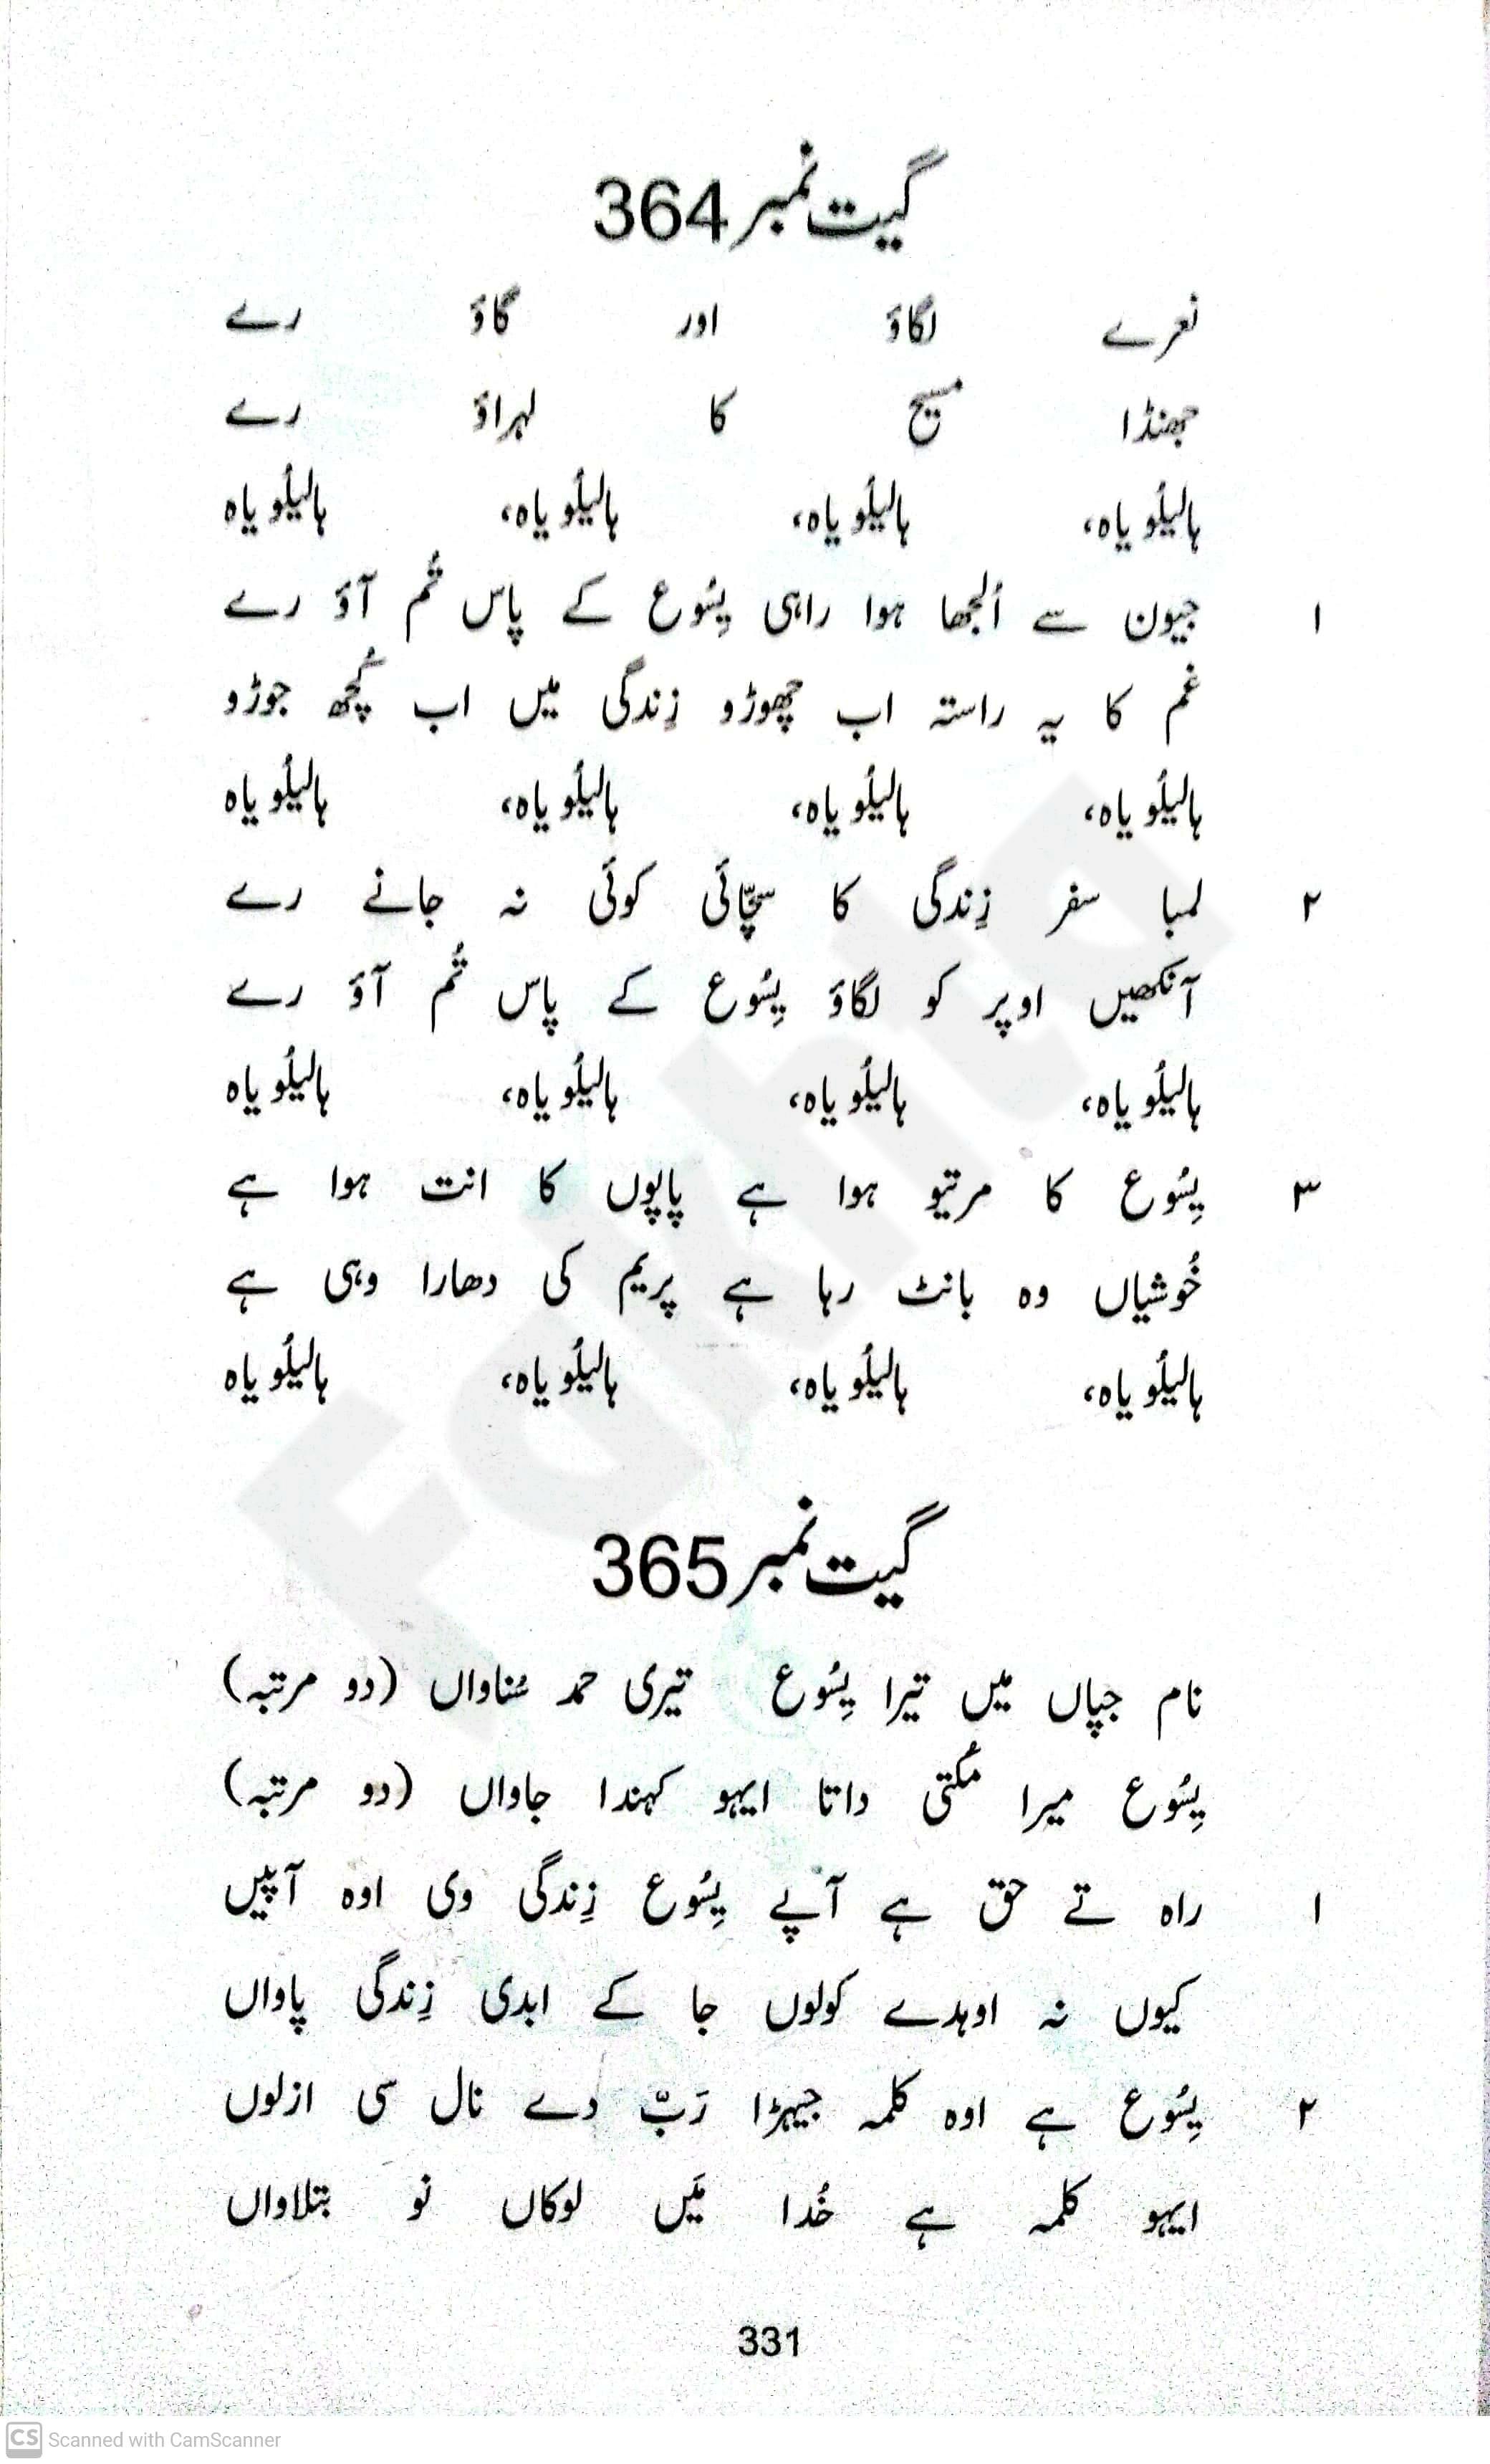 گیت نمبر 364
نعرے لگاؤ اور گاؤ رے
جھنڈا مسیح کا لہراؤ رے
ہالیلُویاہ، ہالیلُویاہ، ہالیلُویاہ، ہالیلُویاہ
۱ جیون سے اُلجھا ہوا راہی یِسُوع کے پاس تُم آؤ رے
غم کا یہ راستہ اب چھوڑو زِندگی میں اب کُچھ جوڑو
ہالیلُویاہ، ہالیلُویاہ، ہالیلُویاہ، ہالیلُویاہ
۲ لمبا سفر زِندگی کا سچّائی کوئی نہ جانے رے
آنکھیں اوپر کو لگاؤ یِسُوع کے پاس تُم آؤ رے
ہالیلُویاہ، ہالیلُویاہ، ہالیلُویاہ، ہالیلُویاہ
۳ یِسُوع کا مرتیو ہوا ہے پاپوں کا انت ہوا ہے
خُوشیاں وہ بانٹ رہا ہے پریم کی دھارا وہی ہے
ہالیلُویاہ، ہالیلُویاہ، ہالیلُویاہ، ہالیلُویاہ
گیت نمبر 365
نام جپاں میں تیرا یِسُوع تیری حمد سُناواں (دو مرتبہ)
یِسُوع میرا مُکتی داتا ایہو کہندا جاواں (دو مرتبہ)
۱ راہ تے حق ہے آپے یِسُوع زِندگی وی اوہ آپیں
کیوں نہ اوہدے کولوں جا کے ابدی زِندگی پاواں
۲ یِسُوع ہے اوہ کلمہ جیہڑا رَبّ دے نال سی ازلوں
ایہو کلمہ ہے خُدا مَیں لوکاں نو بتلاواں
331
Fakhta
CS Scanned with CamScanner